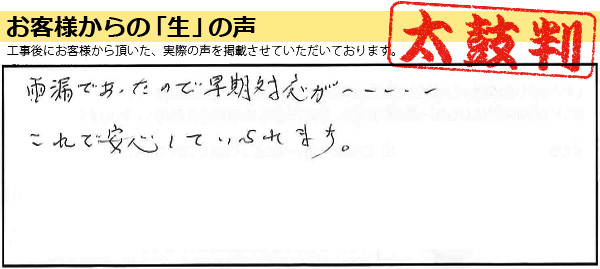 お客様からの「生」の声
太鼓判
工事後にお客様から頂いた、実際の声を掲載させていただいております。
雨漏であったので早期対応が〜ーーー
これで安心していられます。